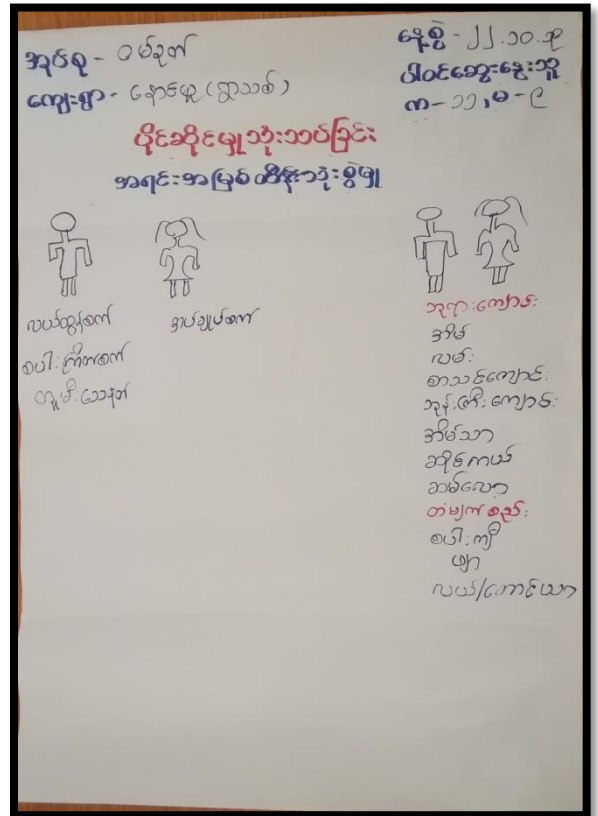 အုပ်စု - ဝမ်ခုတ်
ကျေးရွာ - နောင်ယူ (ရွာသစ်)
နေ့စွဲ - ၂၂.၁၀.၂၃
ပါဝင်ဆွေးနွေးသူ
က - ၁၁, မ - ၉
ပိုင်ဆိုင်မှုသုံးသပ်ခြင်း
အရင်းအမြစ်ထိန်းသုံးစွဲမှု
လယ်ထွန်စက်
စပါးကြိတ်စက်
တူမီးသေနတ်
အပ်ချုပ်စက်
ဘုရားကျောင်း
အိမ်
လမ်း
စာသင်ကျောင်း
ဘုန်းကြီးကျောင်း
အိမ်သာ
ဆိုင်ကယ်
တံမျက်စည်း
စပါးကျီ
ဖျာ
လယ်/တောင်ယာ